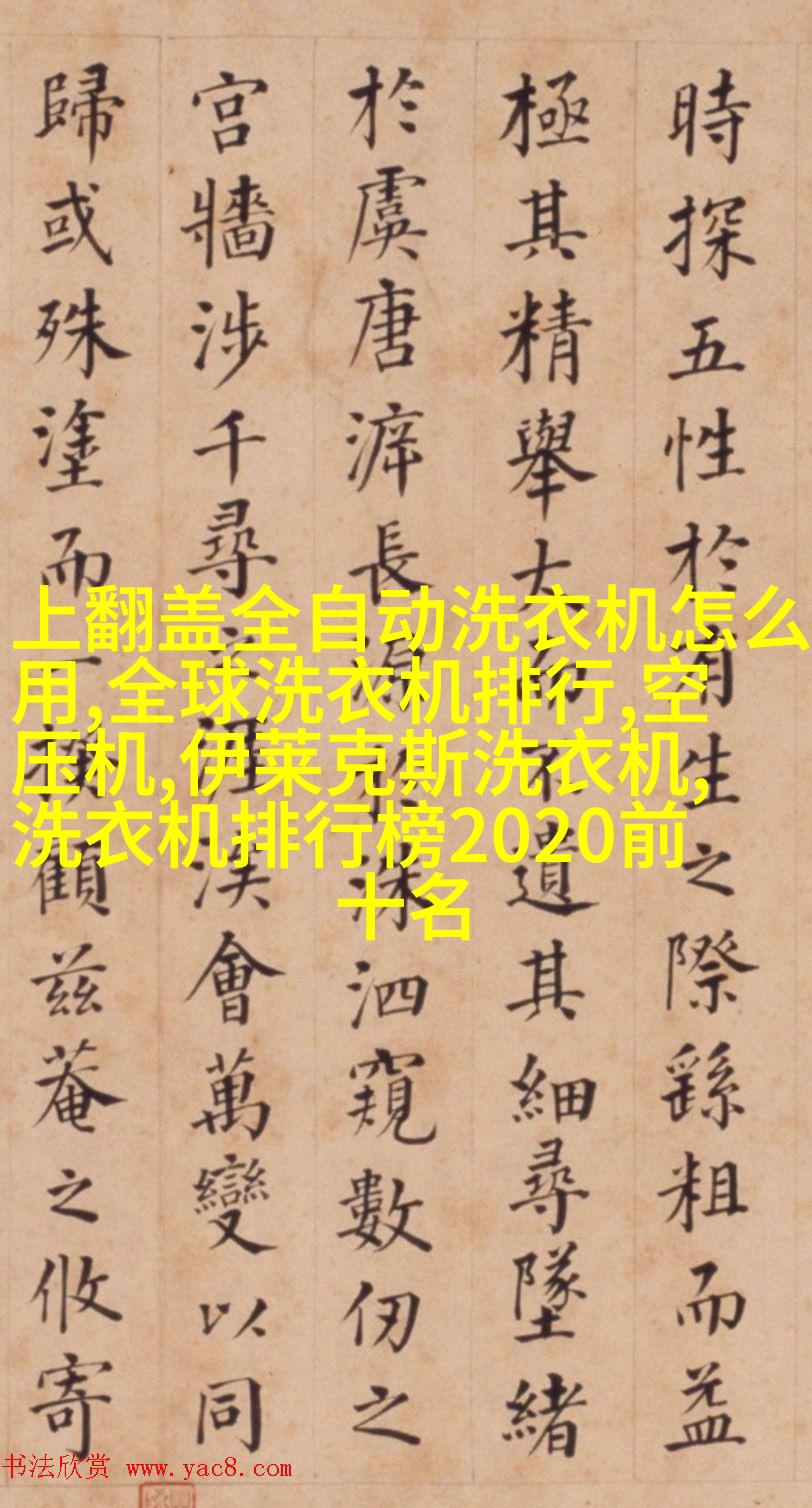 時探五性於用生之際繇粗而益
極其精舉大不遺其細尋墜緒
於虞唐長於洙泗窺數仞之
宫牆涉千尋之汪會萬變以同
歸或殊塗而一揆顧兹菴之攸寄
上翻盖全自动洗衣机怎么
用,全球洗衣机排行,空
压机,伊莱克斯洗衣机,
洗衣机排行榜2020前
十名
书法欣赏 www.yac8.com